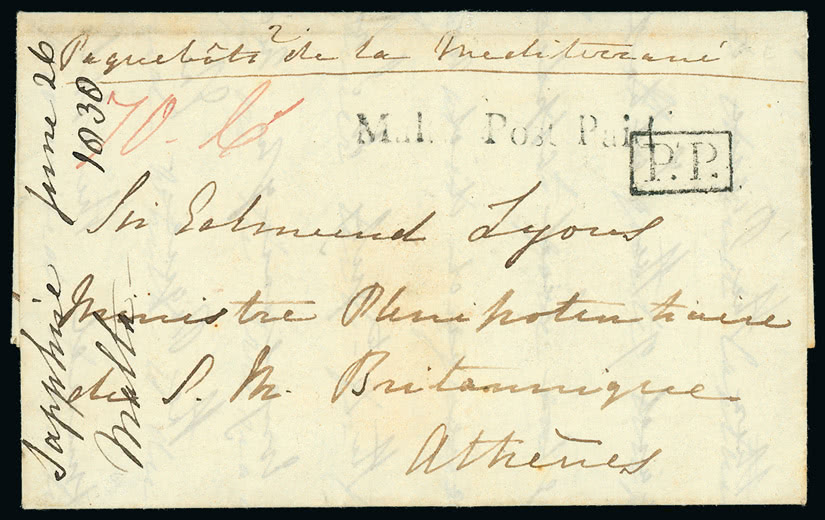 Paquebôts de la Mediterrané
70. 6
Malta Post Paid
P.P.
Sir Edmund Lyons
Ministre Plenipotentiaire
de S. M. Britannique
Athènes
Sapphire June 26
Malta 1838